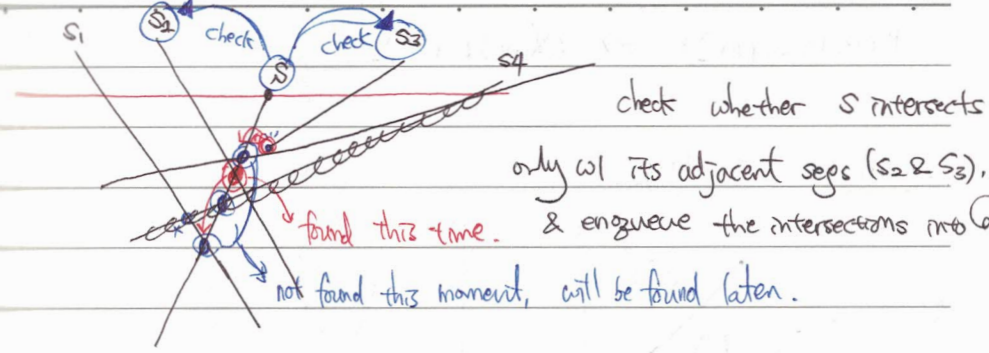 S1
S2
check
S
check
S3
S4
check whether S intersects
only w/ its adjacent segs (S2 & S3).
& enqueue the intersections into Q
found this time.
not found this moment, will be found later.